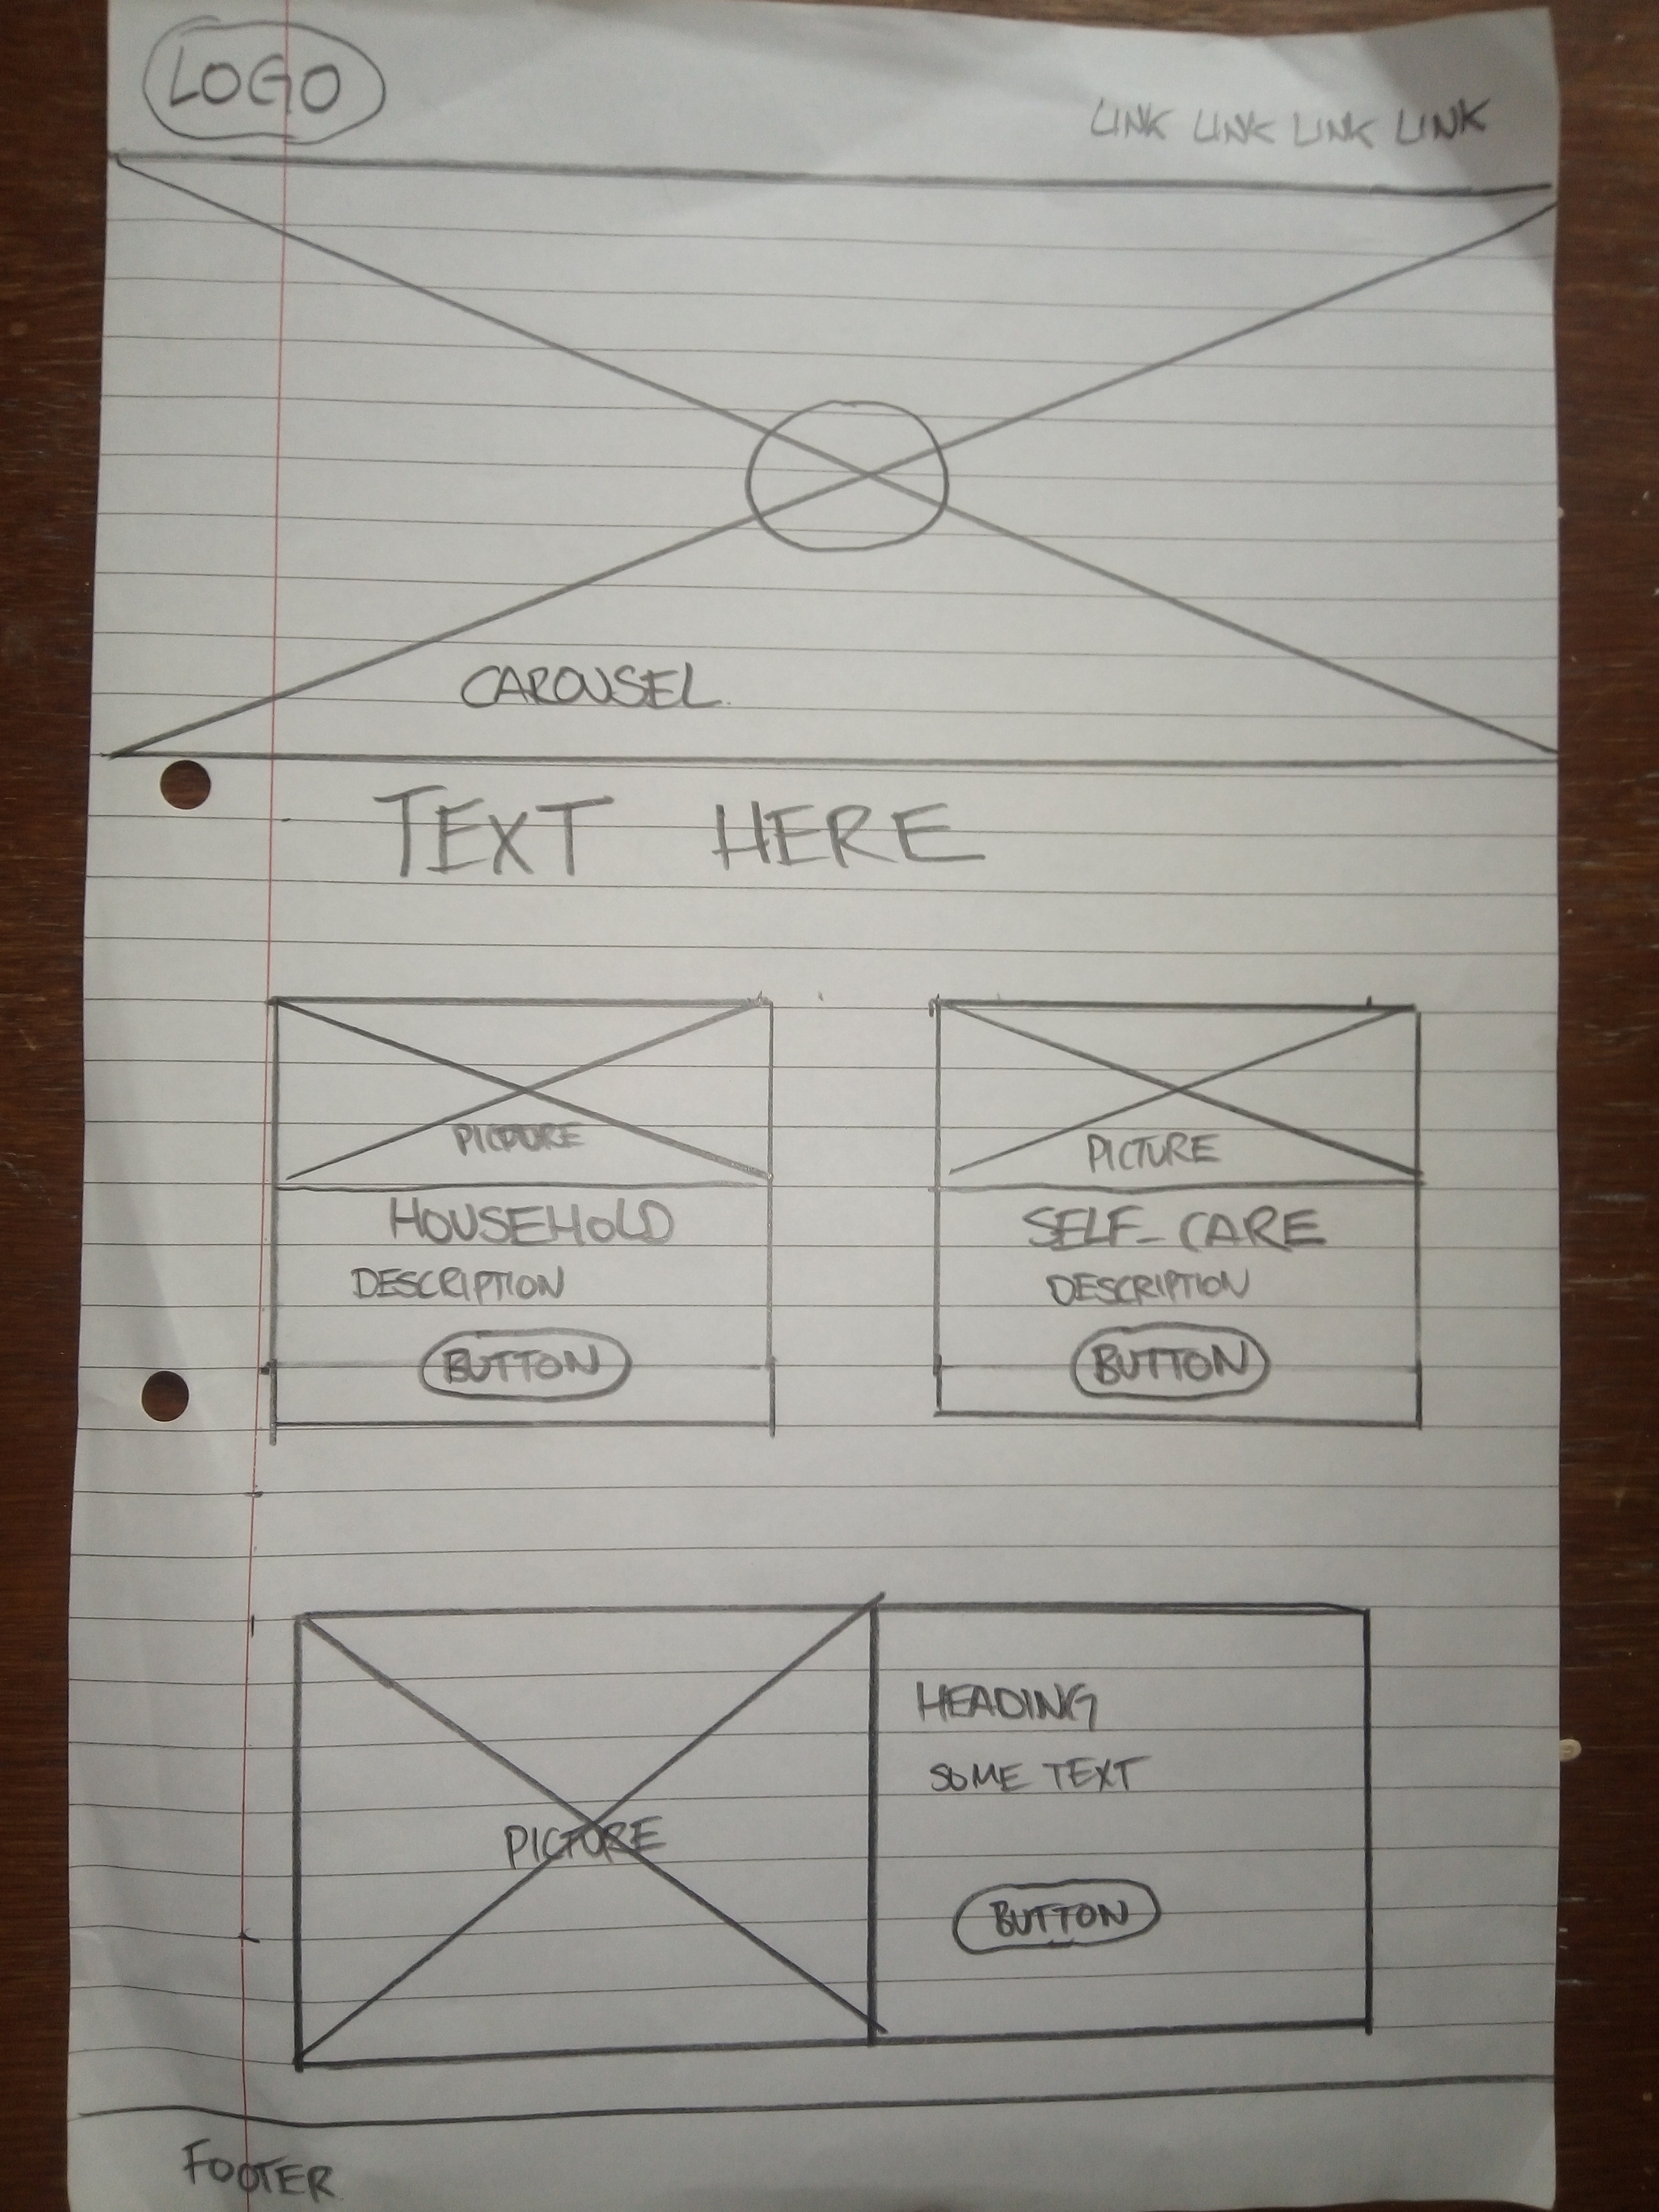 LOGO
LINK LINK LINK LINK
CAROUSEL.
TEXT HERE
PICTURE
PICTURE
HOUSEHOLD
DESCRIPTION
BUTTON
SELF-CARE
DESCRIPTION
BUTTON
PICTURE
HEADING
SOME TEXT
BUTTON
FOOTER